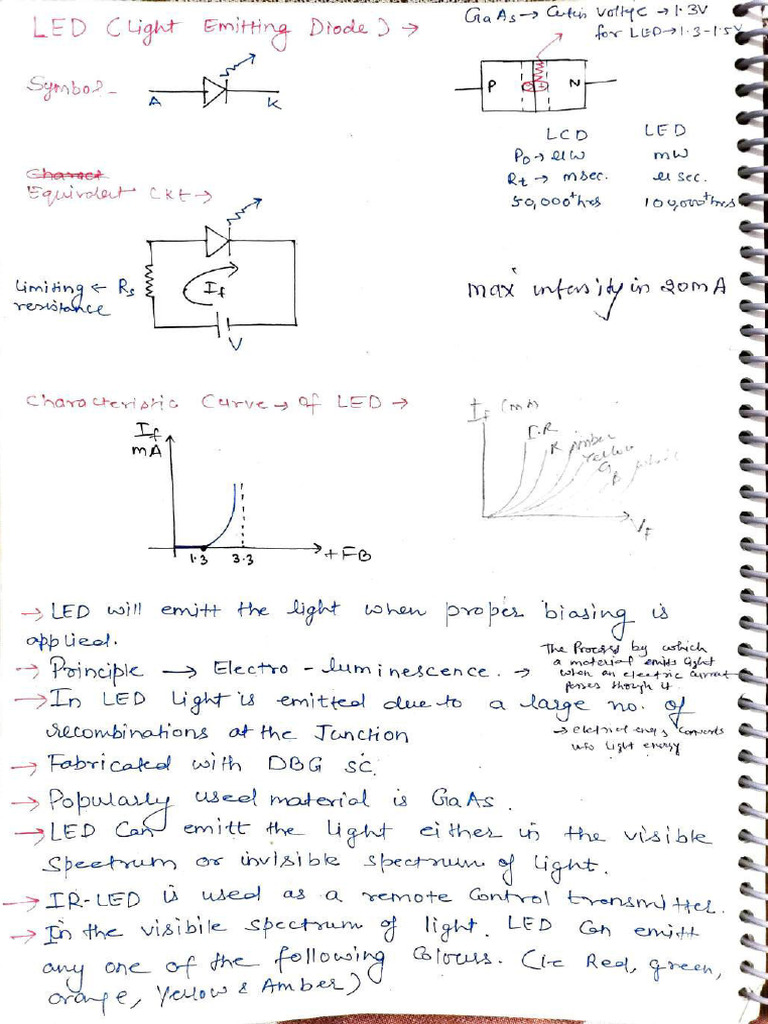 LED (Light Emitting Diode) →
GaAs → Cutin voltge → 1.3V
for LED → 1.3-1.5V
Symbol-
A K
P N
LCD LED
Po → uW mW
Rt → msec. u sec.
50,000+ hrs 100,000+ hrs
Charact
Equivalent CKt →
Limiting ← Rs
resistance
If
V
max intensity in 20mA
Characteristic Curve → of LED →
If
mA
1.3 3.3 + FB
If (mA)
I.R
R
Amber
Yellow
G
B
VF
→ LED will emitt the light when proper biasing is
applied.
→ Principle → Electro-luminescence. →
The Process by which
a material emits light
when an electric current
passes though it.
→ In LED Light is emitted due to a large no. of
recombinations at the Junction
→ Eletrical energy converts
into light energy
→ Fabricated with DBG SC.
→ Popularly used material is GaAs.
→ LED Can emitt the Light either in the visible
Spectrum or invisible spectrum of Light.
→ IR-LED is used as a remote Control transmitter.
→ In the visibile spectrum of light. LED Can emitt
any one of the following Colours. (i-e Red, green,
orange, Yellow & Amber)